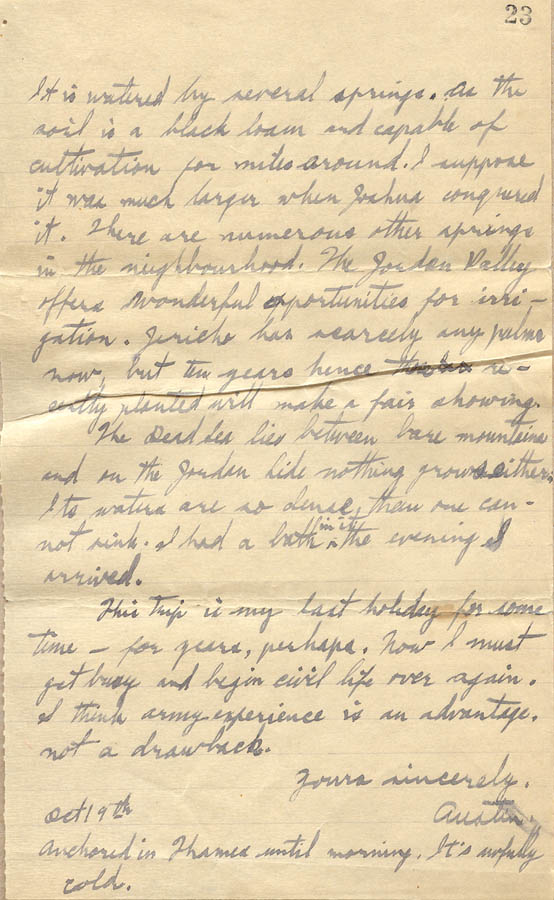 23
It is watered by several springs. As the
soil is a black loam and capable of
cultivation for miles around. I suppose
it was much larger when Joshua conquered
it. There are numerous other springs
in the neighbourhood. The Jordan Valley
offers wonderful opportunities for irri-
gation. Jericho has scarcely any palms
now, but ten years hence those re-
cently planted will make a fair showing.
The Dead Sea lies between bare mountains
and on the Jordan side nothing grows either.
Its waters are so dense, one can-
not sink. I had a bath in it the evening I
arrived.
This trip is my last holiday for some
time – for years, perhaps. Now I must
get busy and begin civil life over again.
I think army experience is an advantage,
not a drawback.
Yours sincerely.
Austin.
Oct 19th
Anchored in Thames until morning. It's awfully
cold.